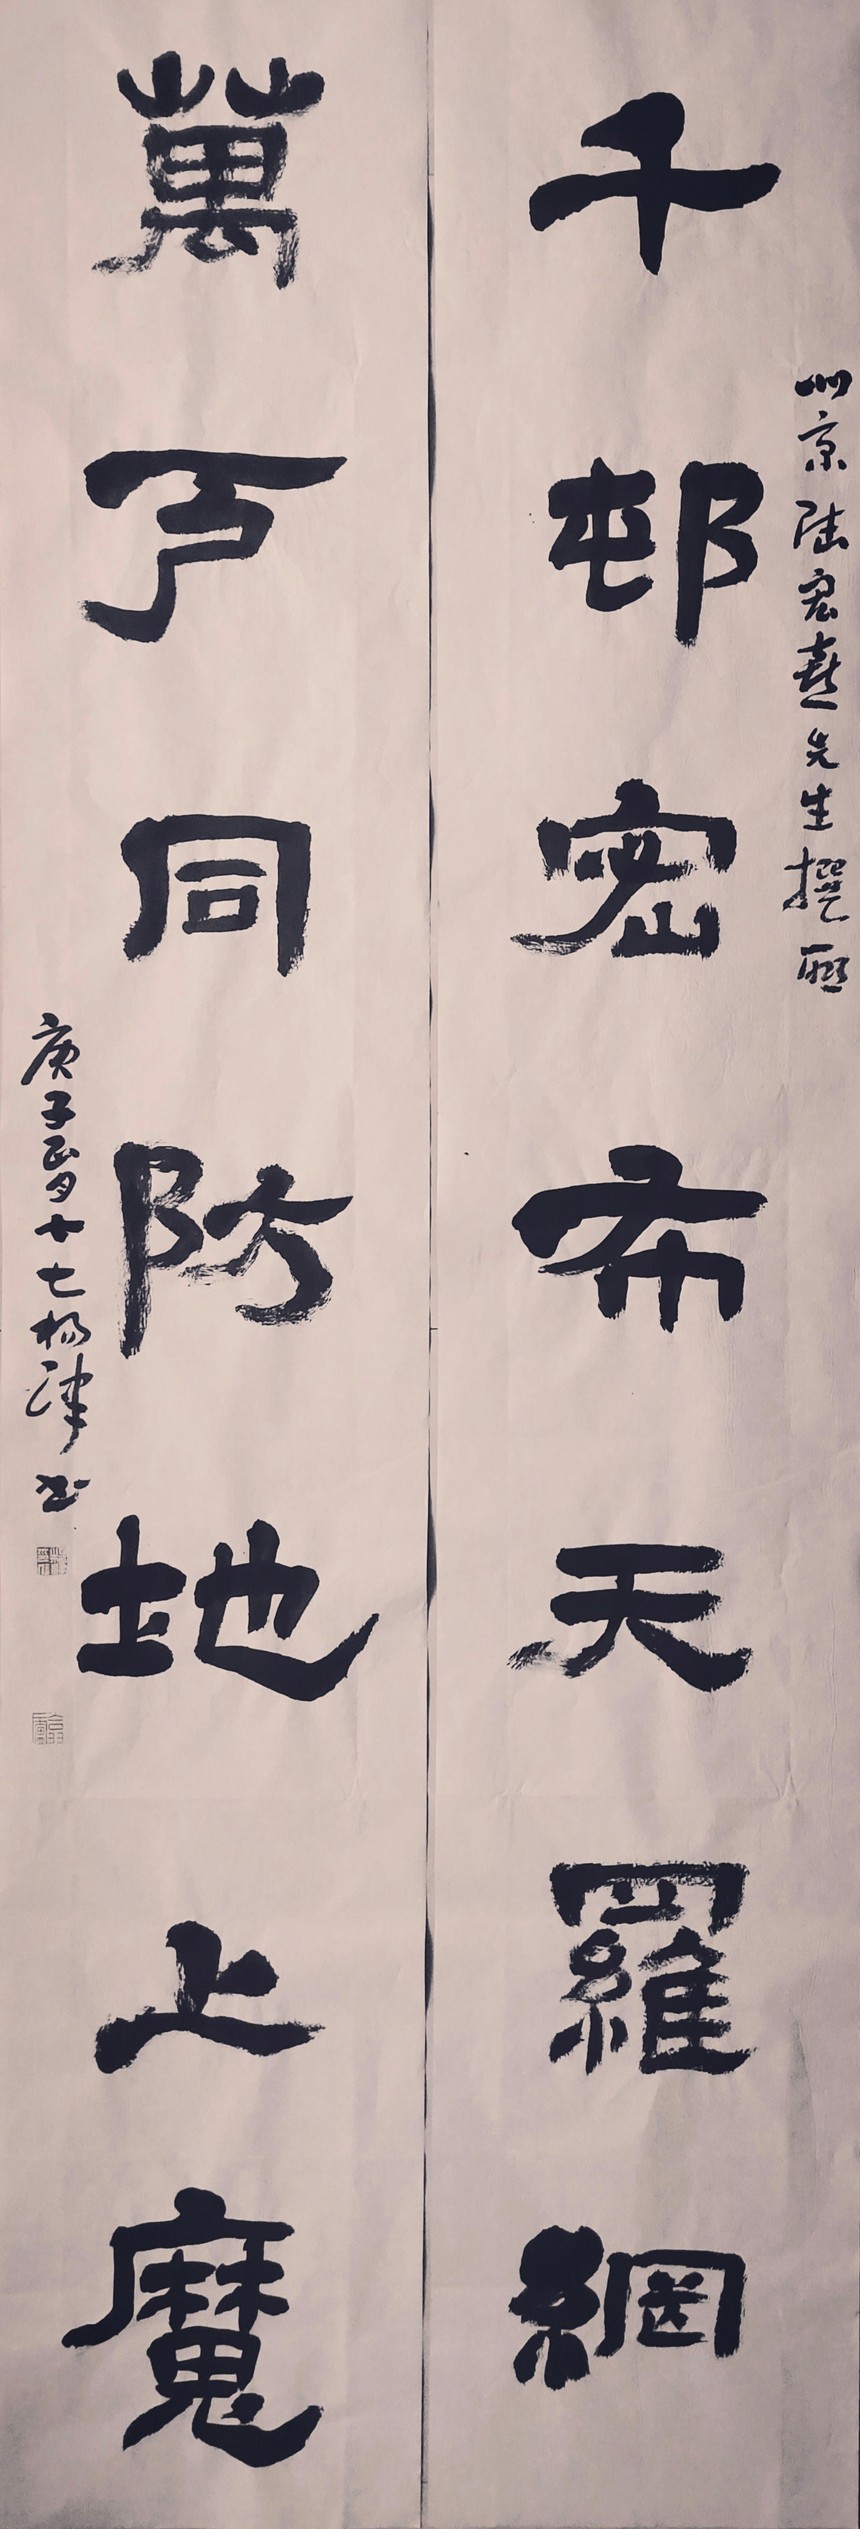 北京陆宏熹先生撰联
千邨密布天羅網
萬户同防地上魔
庚子正月十七杨津书